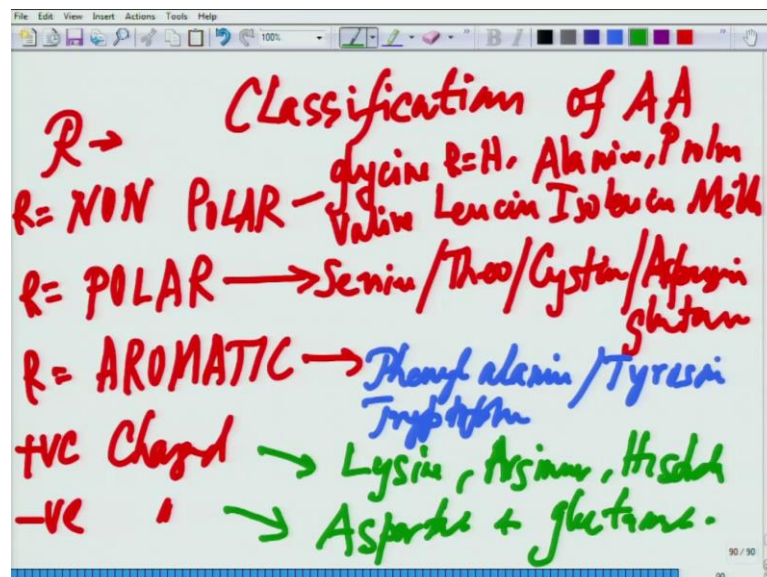 File Edit View Insert Actions Tools Help
100%
B I
Classification of AA
R →
glycine R=H, Alanin, Prolin
R= NON POLAR — Valine Leucin Isoleucin Meth
R= POLAR → Serin/Threo/Cystin/Aspargin
glutam
R= AROMATIC → Phenyl alanin/Tyrosin
Tryptophn
+ve Charged → Lysine, Arginine, Histidn
-ve " → Aspartate + glutamate.
90 / 90